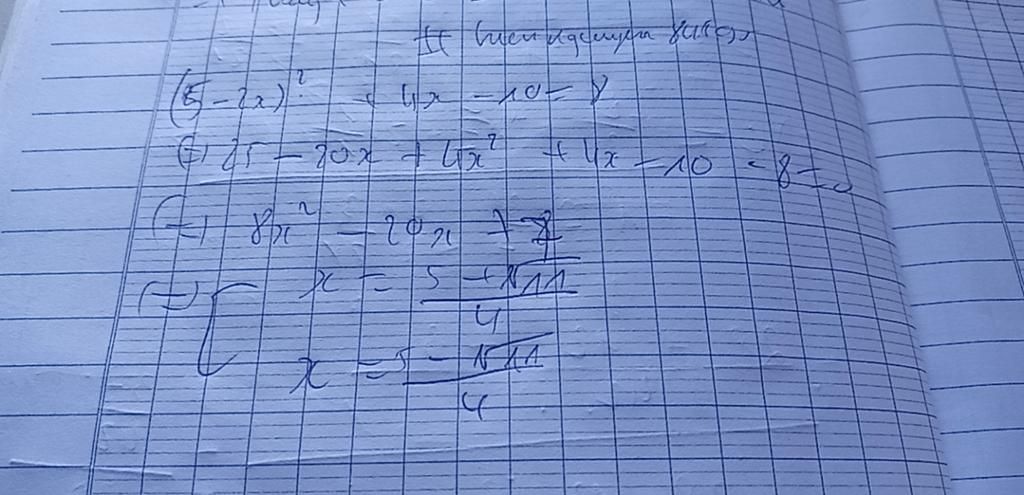 (5-2x)² + 4x - 10 = 8
(=) 25 - 20x + 4x² + 4x - 10 - 8 = 0
(=) 8x² - 20x + 7
(=) [ x = \frac{5 + \sqrt{11}}{4}
x = \frac{5 - \sqrt{11}}{4}